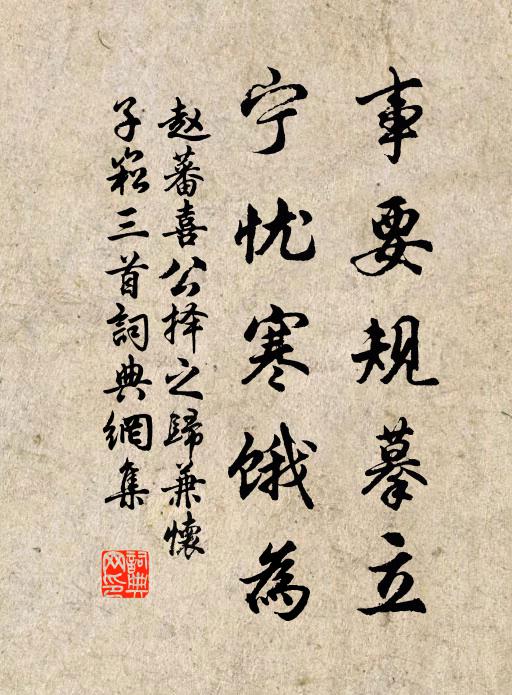 事要规摹立
宁忧寒饿為
赵蕃喜公择之歸兼懷
子崧三首詞典網集
詞典
网印